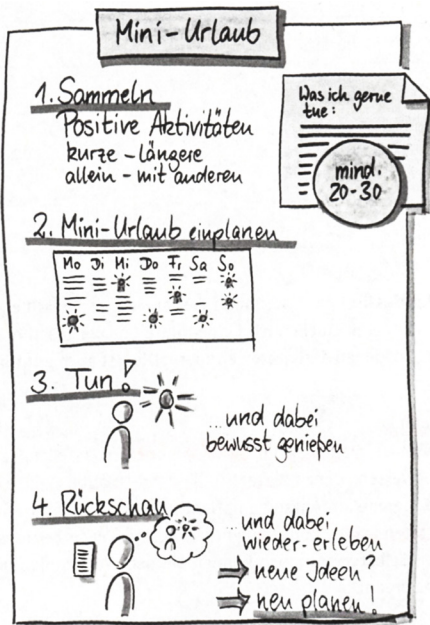 Mini-Urlaub
1. Sammeln
Positive Aktivitäten
kurze - längere
allein - mit anderen
Was ich gerne
tue:
mind.
20-30
2. Mini-Urlaub einplanen
Mo Di Mi Do Fr Sa So
3. Tun!
...und dabei
bewusst genießen
4. Rückschau
...und dabei
wieder-erleben
neue Ideen?
neu planen!